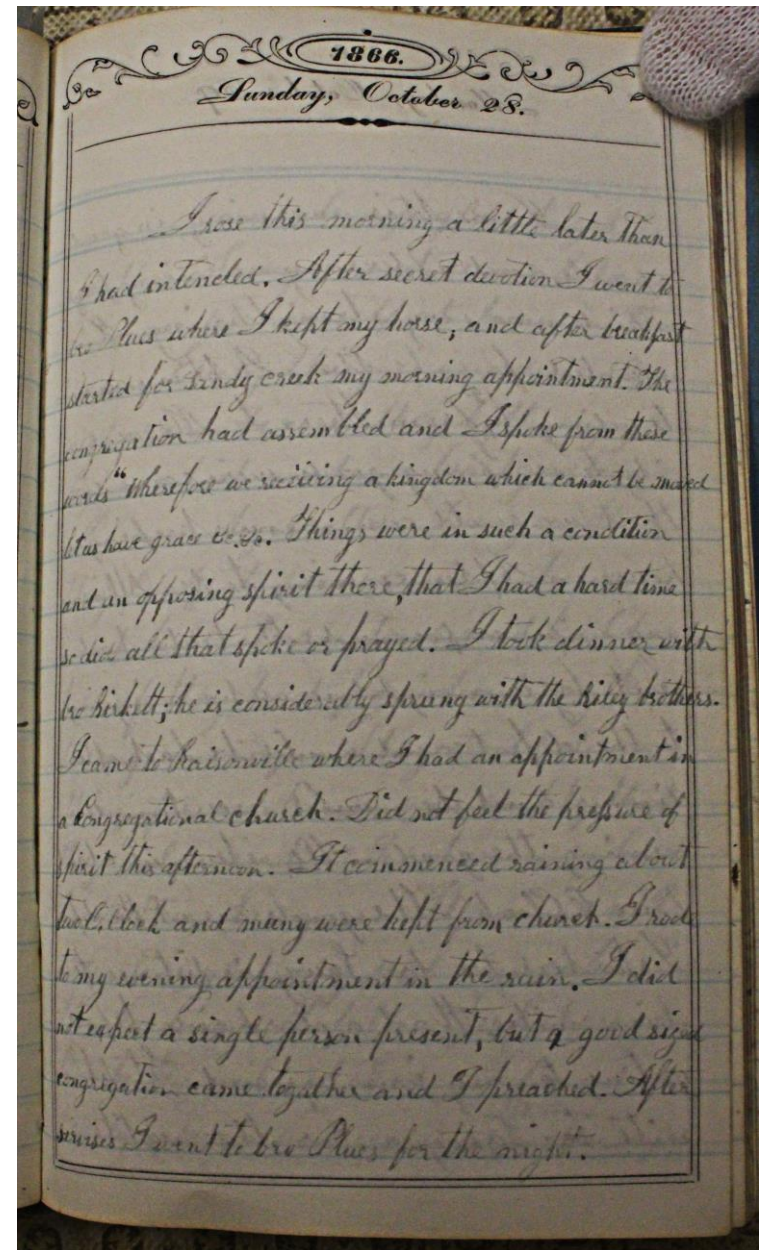 1866.
Sunday, October 28.
I rose this morning a little later than
I had intended. After secret devotion I went to
bro Plues where I kept my horse, and after breakfast
started for Sandy creek my morning appointment. The
congregation had assembled and I spoke from these
words "Wherefore we receiving a kingdom which cannot be moved
let us have grace &c. &c. Things were in such a condition
and an opposing spirit there, that I had a hard time
so did all that spoke or prayed. I took dinner with
bro Birkett; he is considerably sprung with the Riley brothers.
I came to Raisonville where I had an appointment in
a Congregational church. Did not feel the pressure of
spirit this afternoon. It commenced raining about
two O,clock and many were kept from church. I rode
to my evening appointment in the rain. I did
not expect a single person present, but a good sized
congregation came together and I preached. After
servises I went to bro Plues for the night.